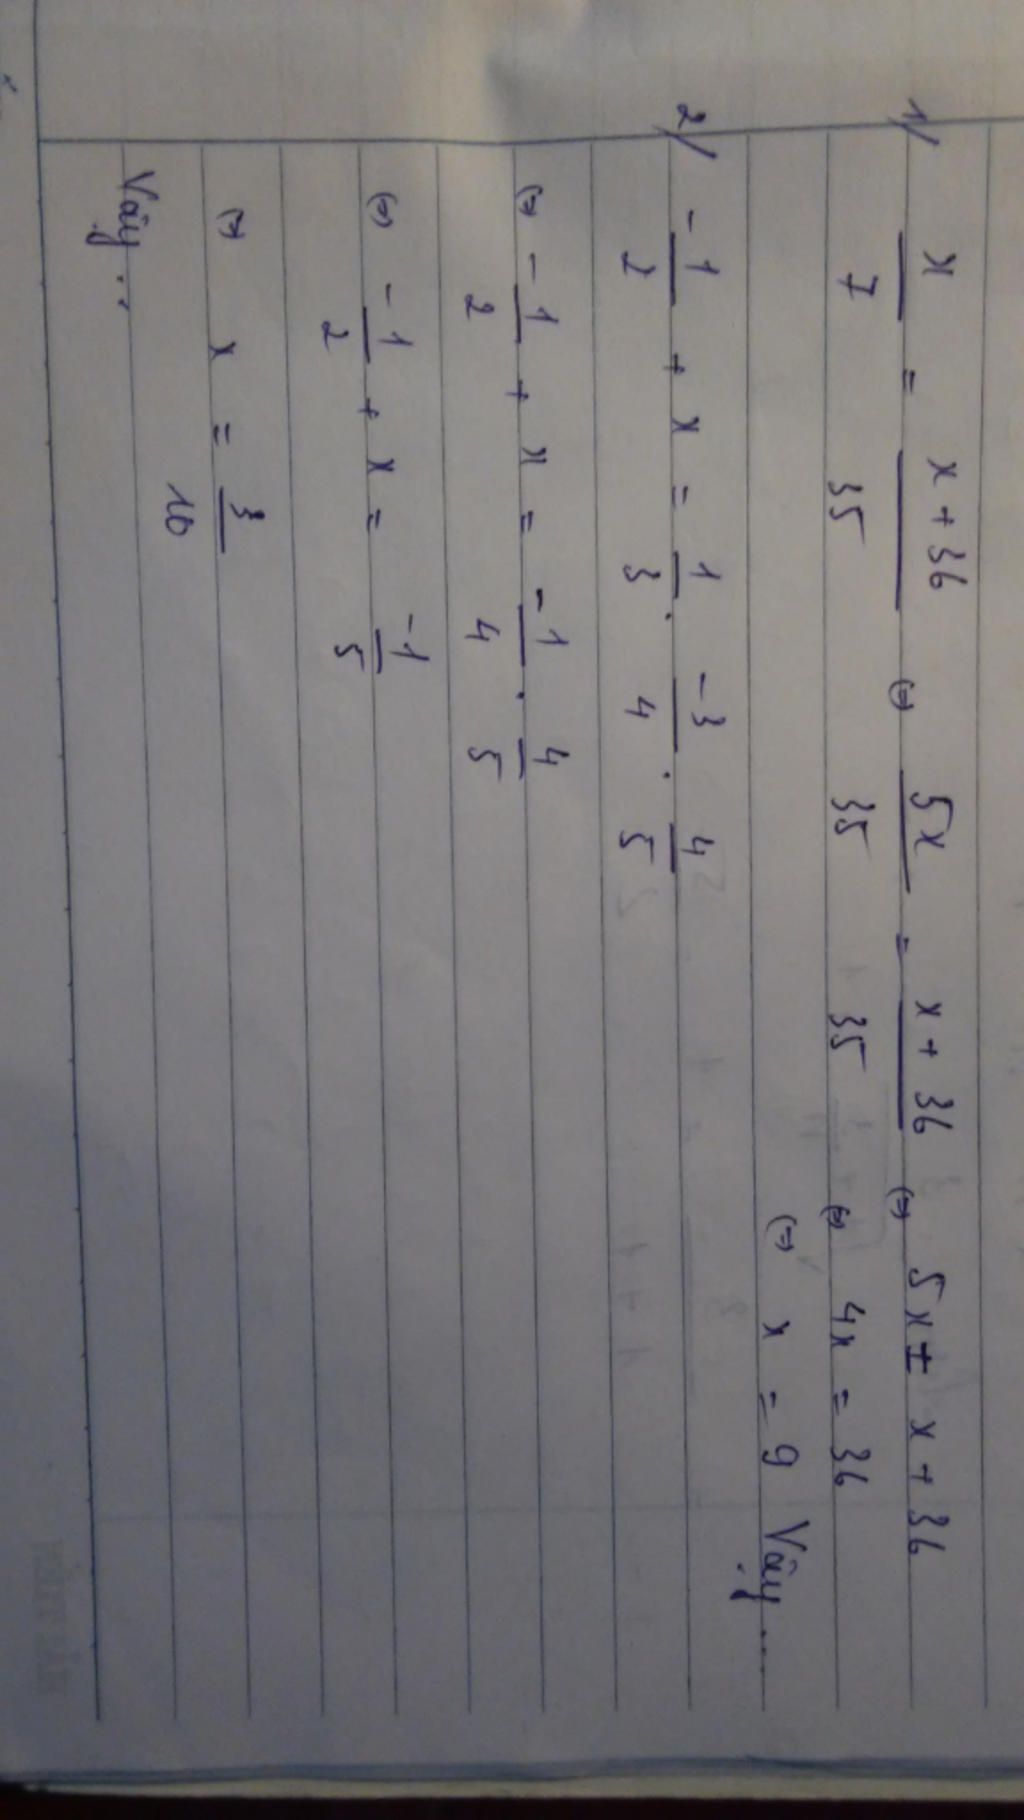 1/ x/7 = (x + 36)/35 (=) 5x/35 = (x + 36)/35 (=) 5x = x + 36
(=) 4x = 36
(=) x = 9 Vậy ...
2/ -1/2 + x = 1/3 . -3/4 . 4/5
(=) -1/2 + x = -1/4 . 4/5
(=) -1/2 + x = -1/5
(=) x = 3/10
Vậy ...